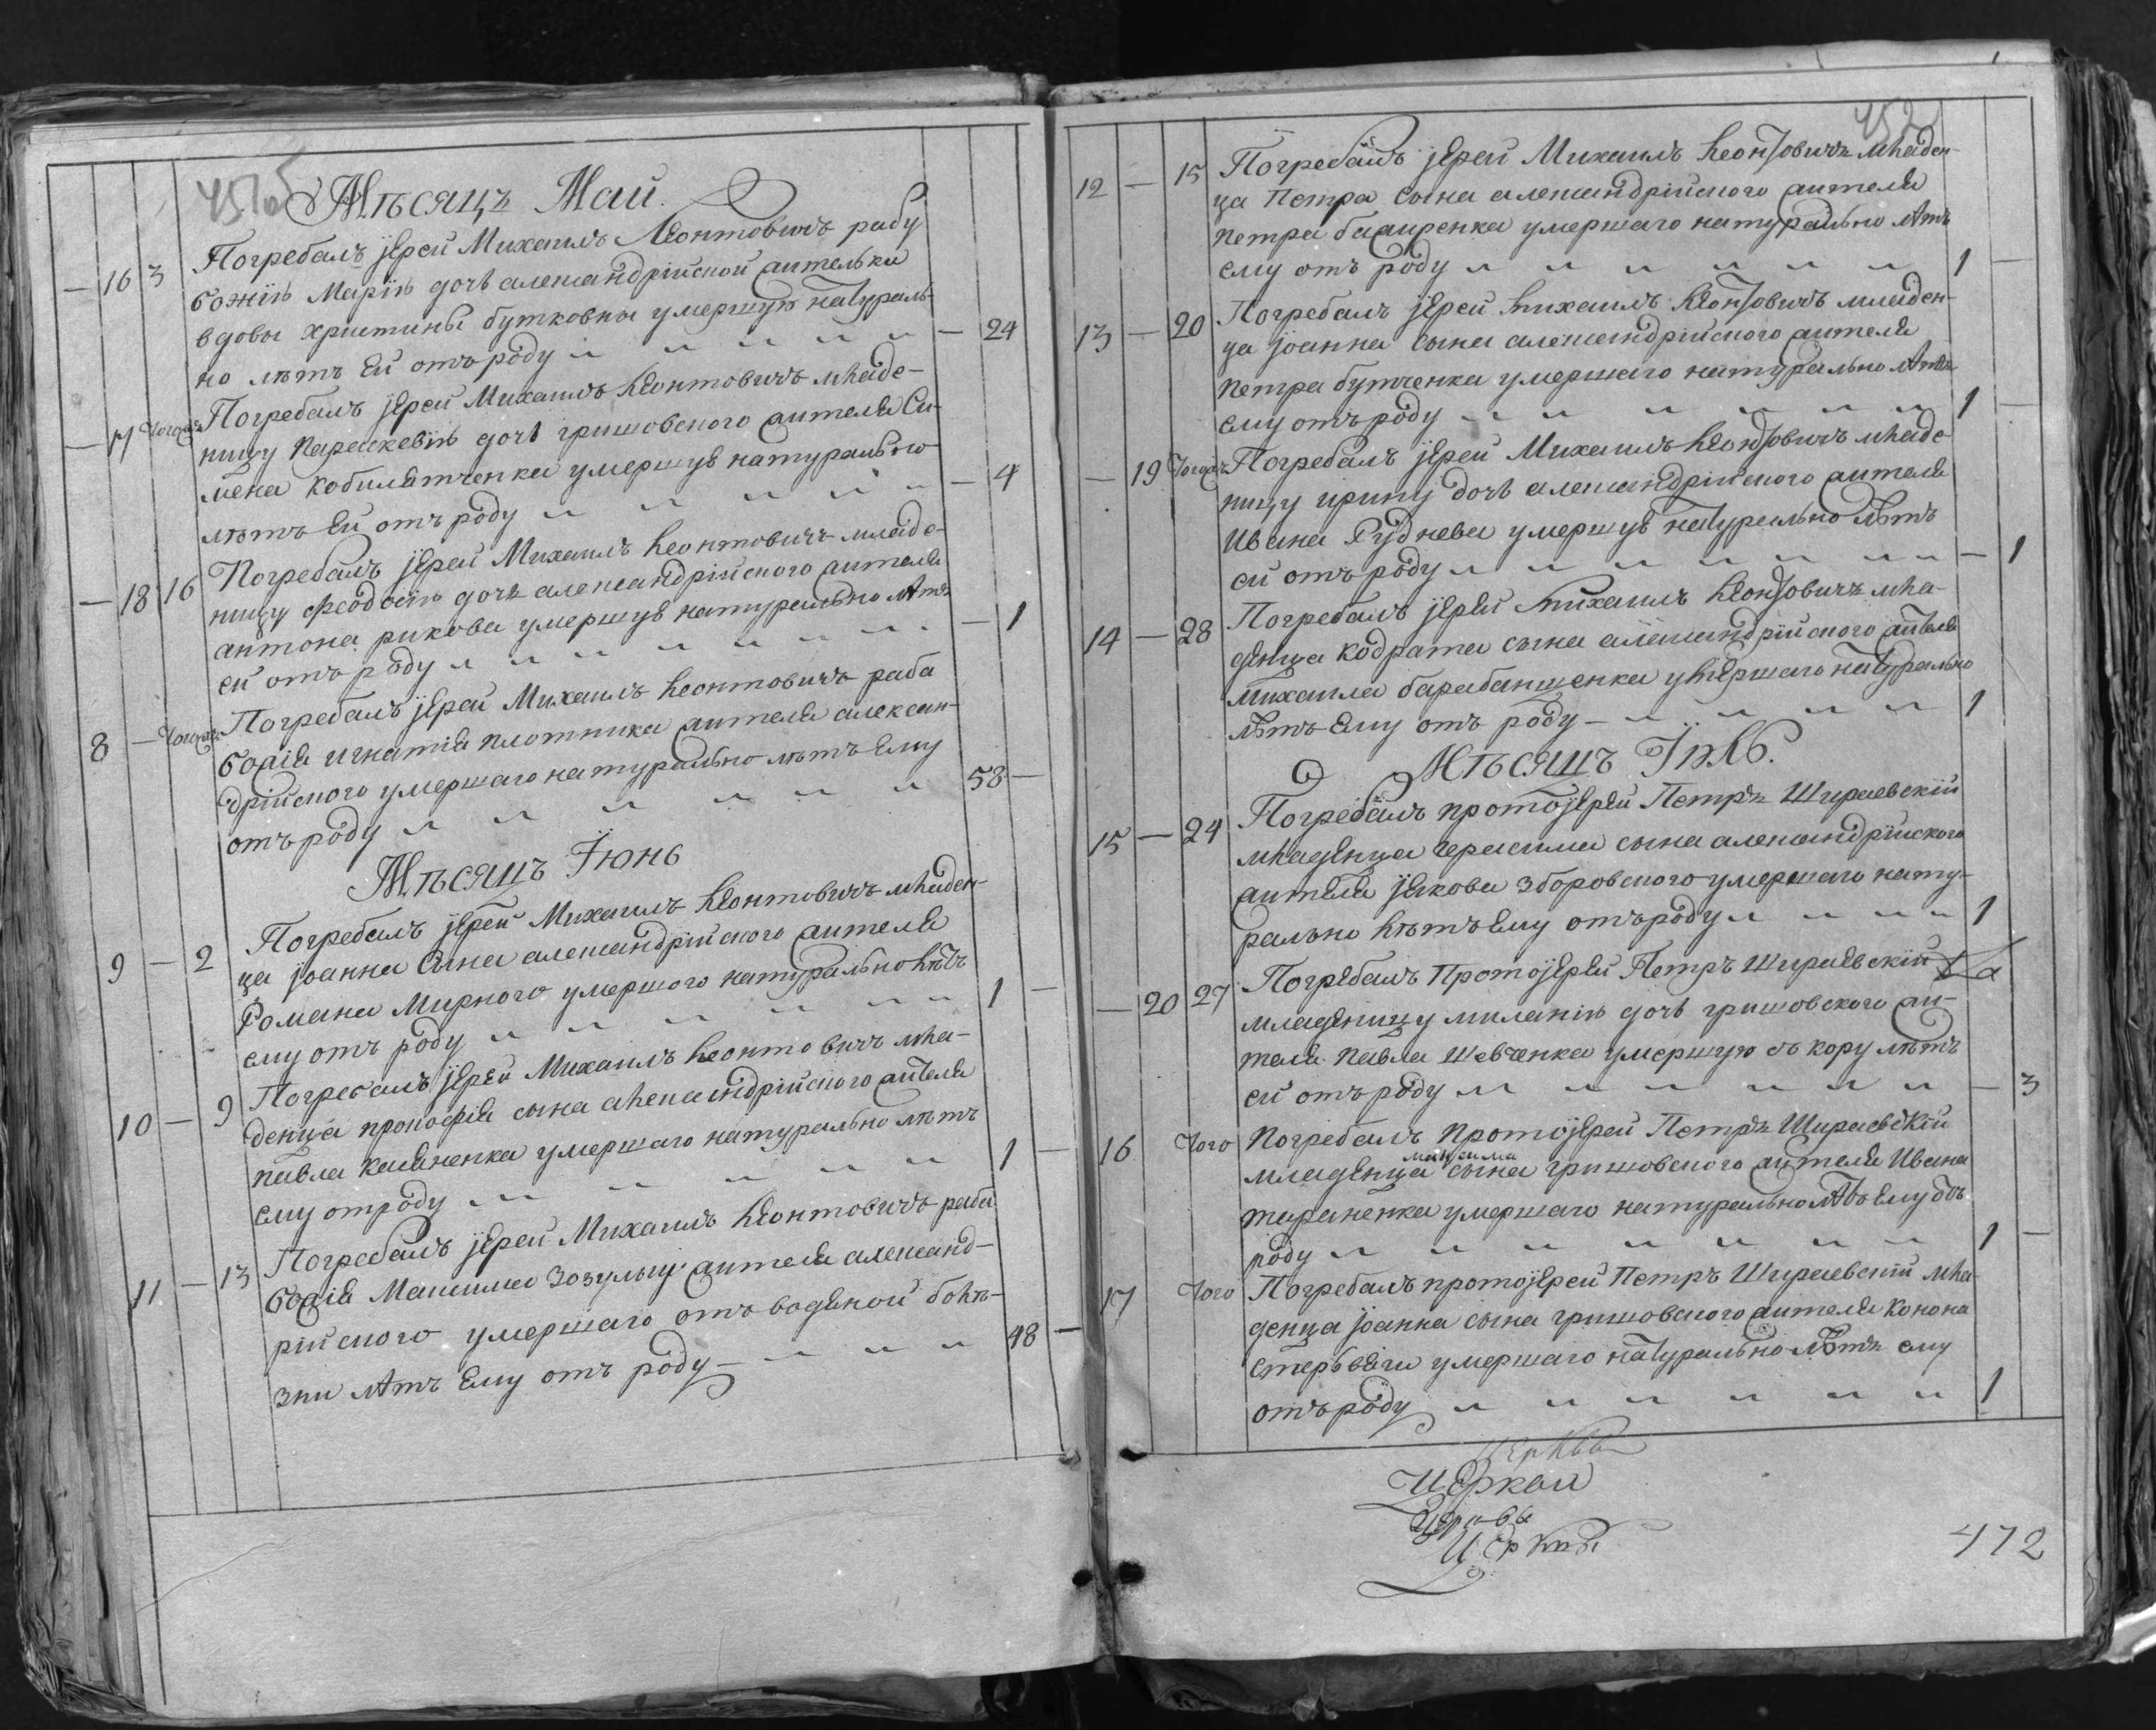 Мѣсяцъ Май.
— 16 3 Погребалъ іерей Михаилъ Леонтовичъ рабу
божію Марію дочь александрійской жительки
вдовы христины бутковны умершую натураль-
но лѣтъ ей отъ роду — 24
— 17 Тогожъ Погребалъ іерей Михаилъ Леонтовичъ младе-
ницу Параскевію дочь гришовского жителя Си-
мена кобилятченка умершую натурально
лѣтъ ей отъ роду — 4
— 18 16 Погребалъ іерей Михаилъ Леонтовичъ младе-
ницу феодосію дочь александрійского жителя
антона рикова умершую натурально лѣтъ
ей отъ роду — 1
8 — Тогожъ Погребалъ іерей Михаилъ Леонтовичъ раба
божія игнатія плотника жителя алексан-
дрійского умершаго натурально лѣтъ ему
отъ роду 58 —
Мѣсяцъ Іюнь
9 — 2 Погребалъ іерей Михаилъ Леонтовичъ младен-
ца іоанна сына александрійского жителя
Романа Мирного умершого натурально лѣтъ
ему отъ роду 1 —
10 — 9 Погребалъ іерей Михаилъ Леонтовичъ мла-
денца прокофія сына александрійского жителя
павла калѣненка умершаго натурально лѣтъ
ему отроду 1 —
11 — 13 Погребалъ іерей Михаилъ Леонтовичъ раба
божія Максима Зозулю жителя александ-
рійского умершаго отъ водяной болѣ-
зни лѣтъ ему отъ роду — 48 —
12 — 15 Погребалъ іерей Михаилъ Леонтовичъ младен-
ца Петра сына александрійского жителя
петра умершаго натурально лѣтъ
ему отъ роду 1 —
13 — 20 Погребалъ іерей михаилъ Леонтовичъ младен-
ца іоанна сына александрійского жителя
петра бутченка умершаго натурально лѣтъ
ему отъ роду 1 —
— 19 Тогожъ Погребалъ іерей Михаилъ Леонтовичъ младе
ницу ирину дочь александрійского жителя
Ивана Руднева умершую натурально лѣтъ
ей отъ роду — 1
14 — 28 Погребалъ іерей михаилъ Леонтовичъ мла-
денца кодрата сына александрійского жителя
михаила барабаншенка умершаго натурально
лѣтъ ему отъ роду — 1
Мѣсяцъ Іюль.
15 — 24 Погребалъ протоіерей Петръ Шираевскій
младенца герасима сына александрійского
жителя іякова зборовского умершаго нату-
рально лѣтъ ему отъ роду 1
— 20 27 Погребалъ Протоіерей Петръ Шираевскій
младеницу миланію дочь гришовского жи-
теля павла шевченка умершую въ кору лѣтъ
ей отъ роду — 3
16 Того Погребалъ Протоіерей Петръ Шираевскій
младенца максима сына гришовского жителя Ивана
тараненка умершаго натурально лѣтъ ему отъ
роду 1 —
17 Того Погребалъ протоіерей Петръ Шираевскій мла-
денца іоанна сына гришовского жителя Конона
стервѣги умершаго натурально лѣтъ ему
отъ роду 1
472